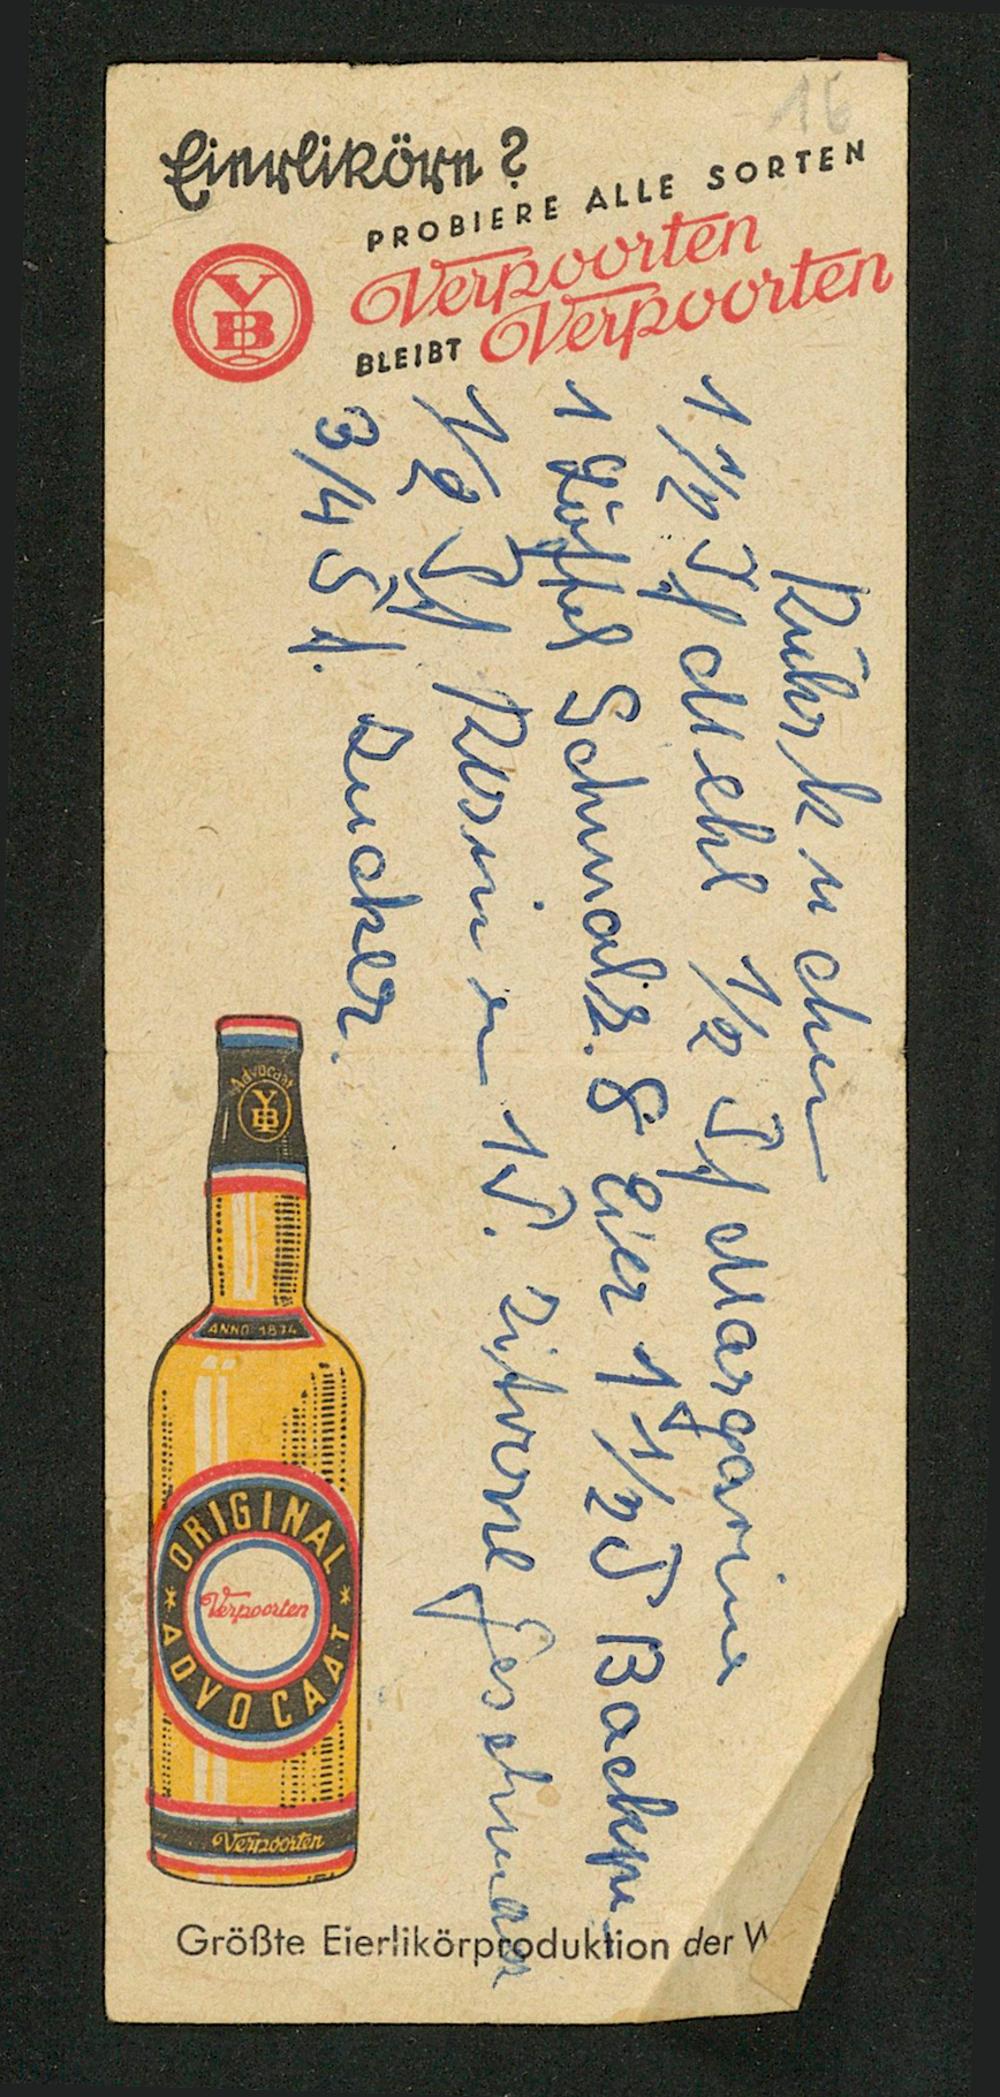 16
Eierliköre?
PROBIERE ALLE SORTEN
Verpoorten
BLEIBT Verpoorten
VB
Rührkuchen
1 1/2 Pf Mehl 1/2 Pf Margarine
1 Löffel Schmalz. 8 Eier 1 1/2 P Backpu
1/2 Pf Rosinen 1 P. Zitronel
3/4 Pf. Zucker.
Advocaat
VB
ANNO 1874
ORIGINAL
Verpoorten
ADVOCAAT
Verpoorten
Größte Eierlikörproduktion der W